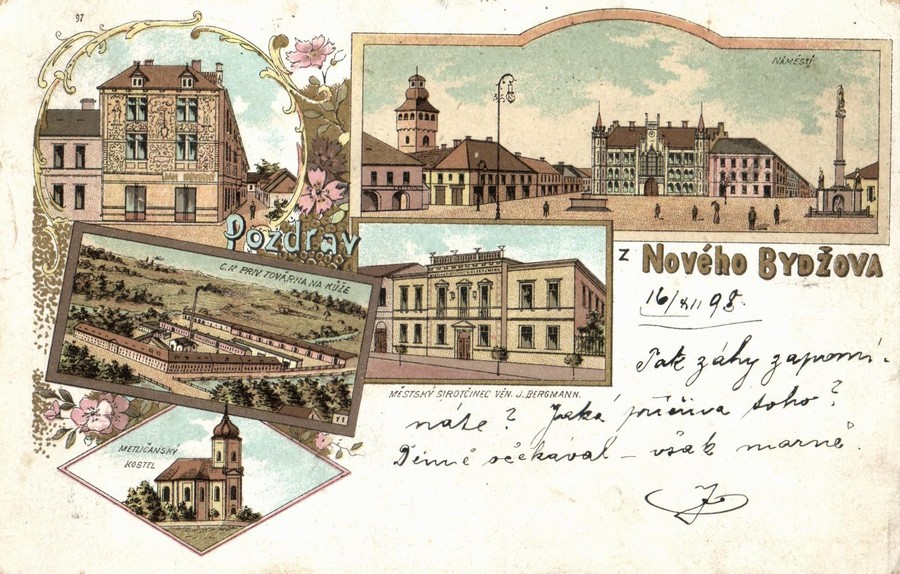 97
NÁMĚSTÍ
Pozdrav
z Nového Bydžova
C. K. PRIV. TOVÁRNA NA KŮŽE
MĚSTSKÝ SIROTČINEC VĚN. J. BERGMANN.
METLIČANSKÝ
KOSTEL
16/XII 98.
Tak záhy zapomí-
náte? Jaká příčina toho?
Denně očekával – však marně